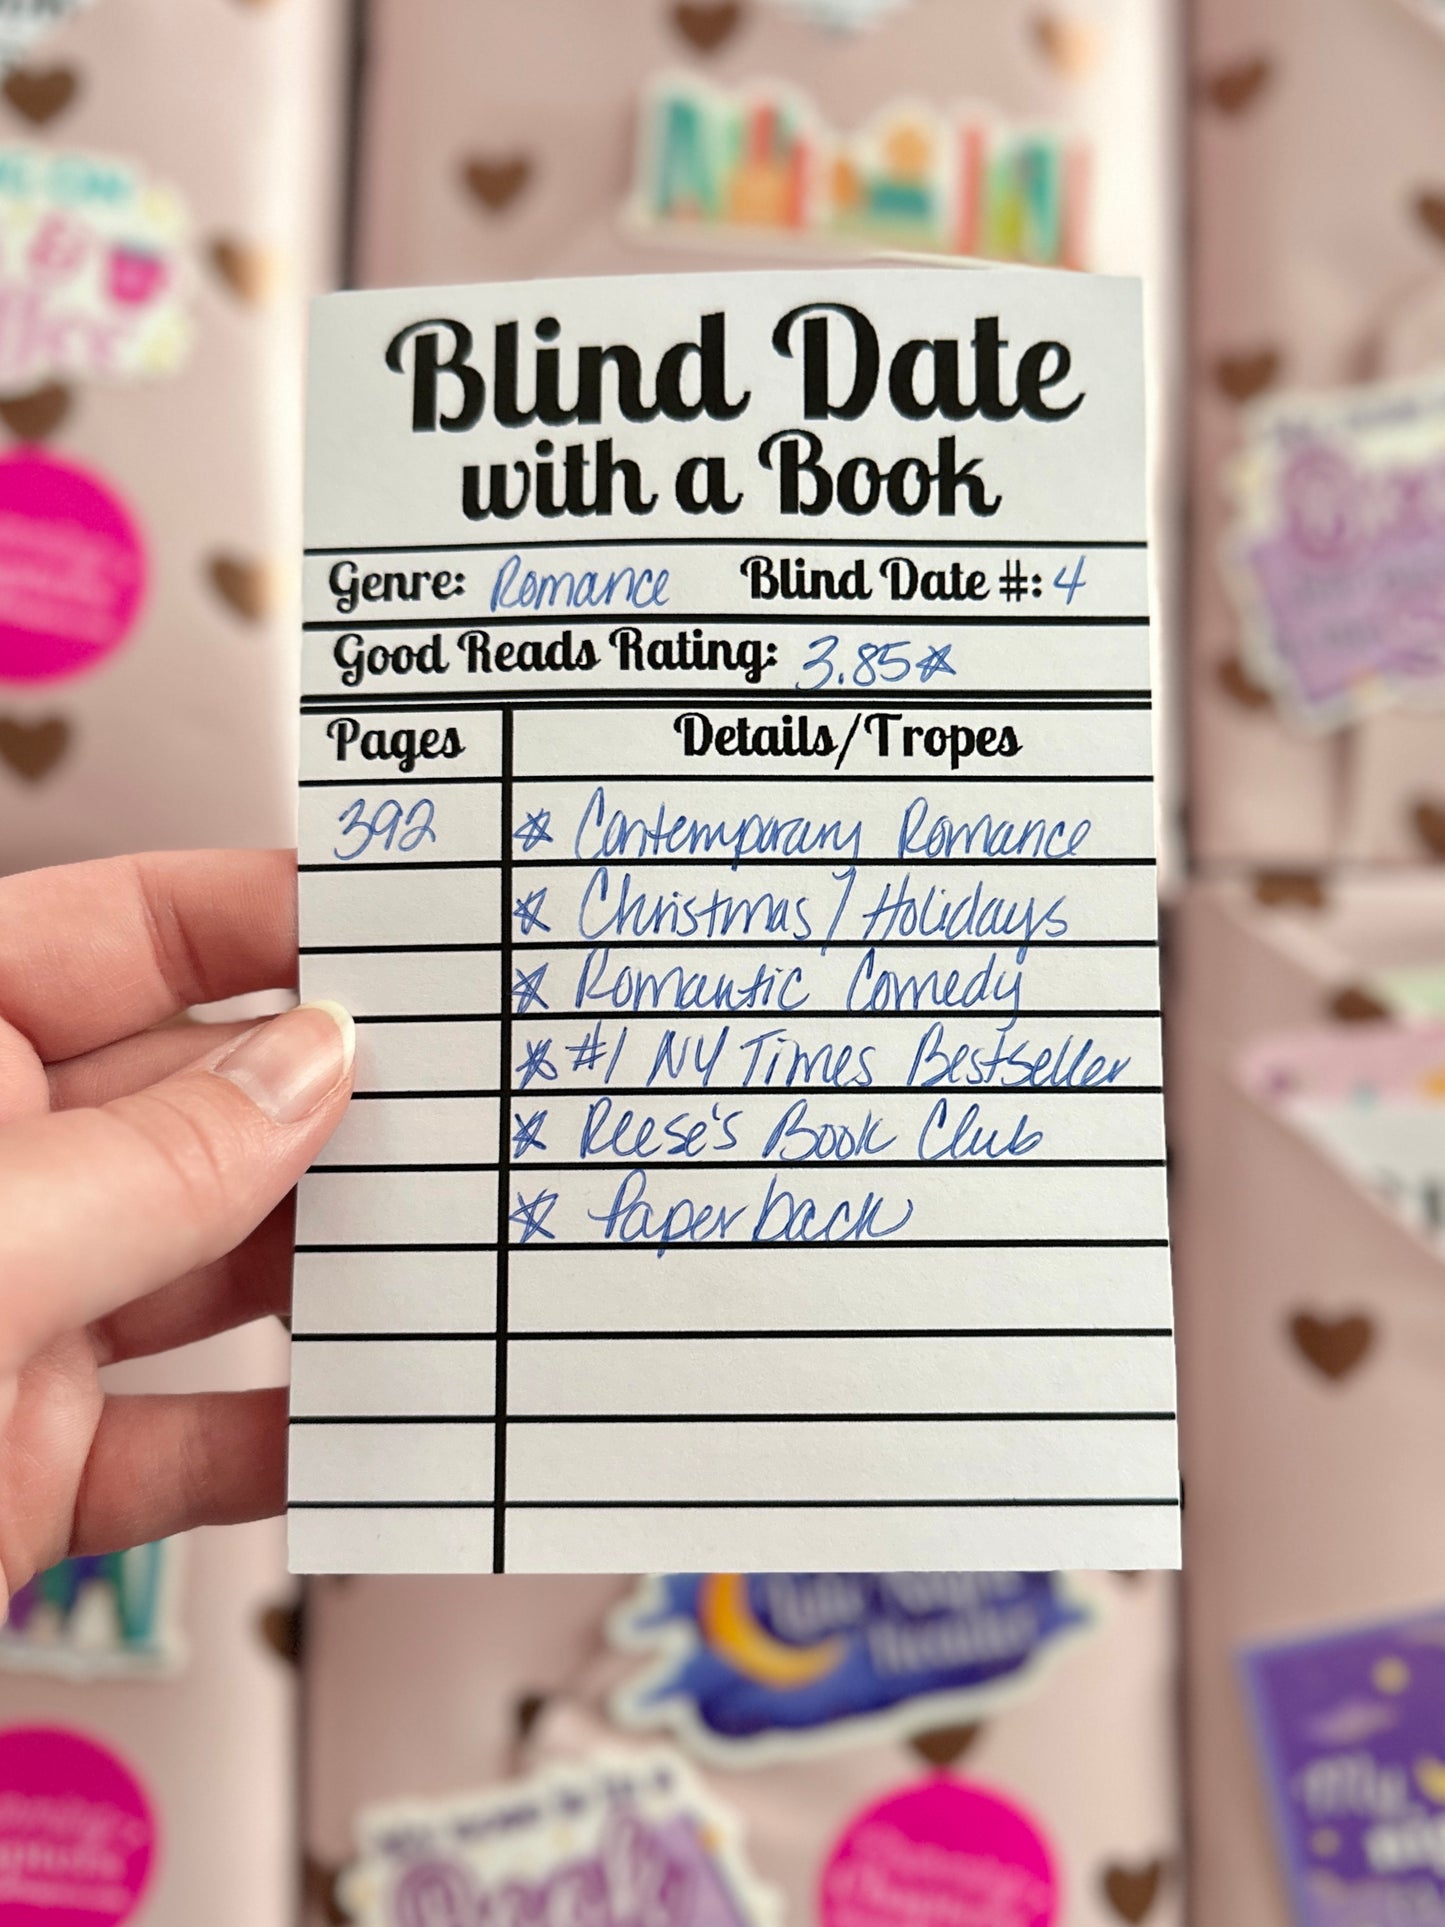 Blind Date
with a Book
Genre: Romance Blind Date #: 4
Good Reads Rating: 3.85☆
Pages Details/Tropes
392 ☆ Contemporary Romance
☆ Christmas / Holidays
☆ Romantic Comedy
☆ #1 NY Times Bestseller
☆ Reese's Book Club
☆ Paperback
Late Night
Reader
My